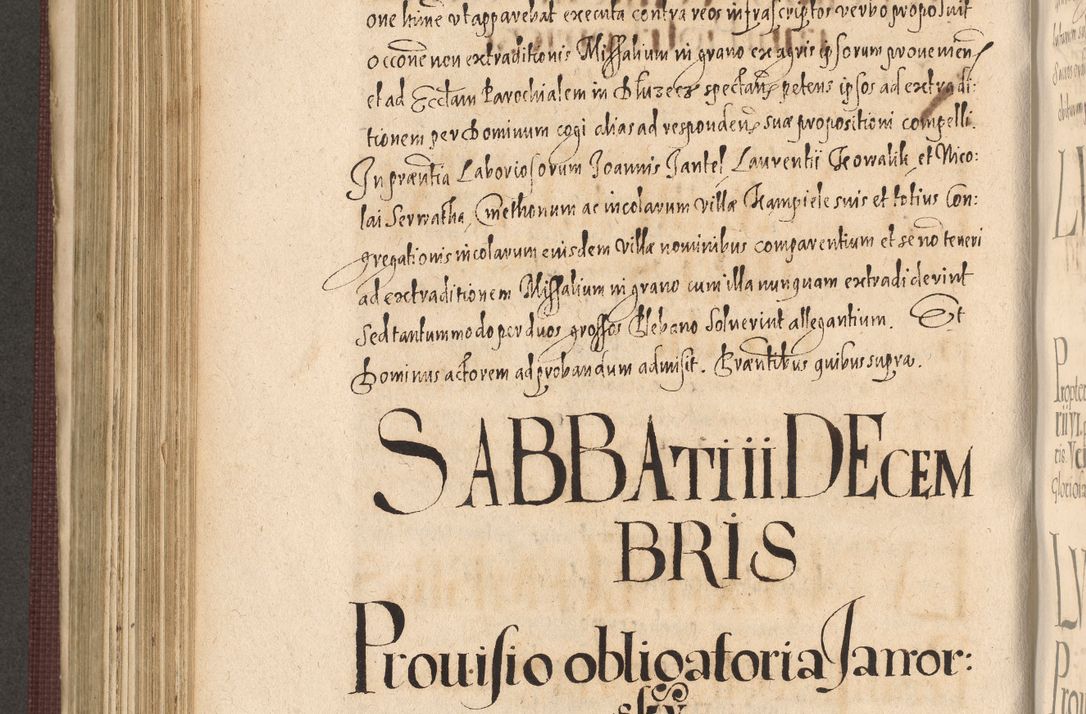 one hinc vt apparebat executa contra reos infrascriptos verbo proposuit
occone non extraditionis Missalium in grano ex agris ipsorum prouenien
et ad Eccłam Parochialem in Bluzeez spectan, petens ipsos ad extradi:
tionem per Dominum cogi alias ad responden, suæ propositioni compelli.
In præntia Laboriosorum Joannis Jantel, Laurentii Kowalik, et Nico:
lai Serwatka, Cmethonum ac incolarum villæ Kampiele suis et totius Con:
gregationis incolarum eiusdem villæ nominibus comparentium et se nō teneri
ad extraditionem Missalium in grano cum illa nunquam extradiderint
Sed tantummodo per duos grossos Plebano Soluerint allegantium. Et
Dominus actorem ad probandum admisit. Præntibus quibus supra.
SABBATI III DECEM
BRIS
Prouisio obligatoria Janror: